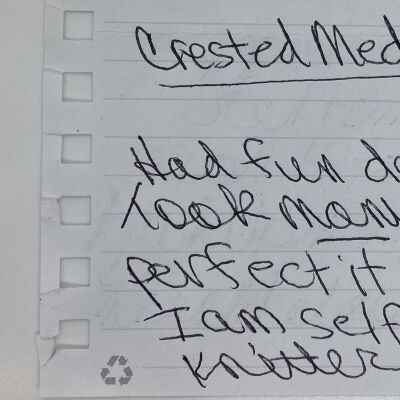 Crested Med
Had fun do
took man
perfect it
I am self
Knitter